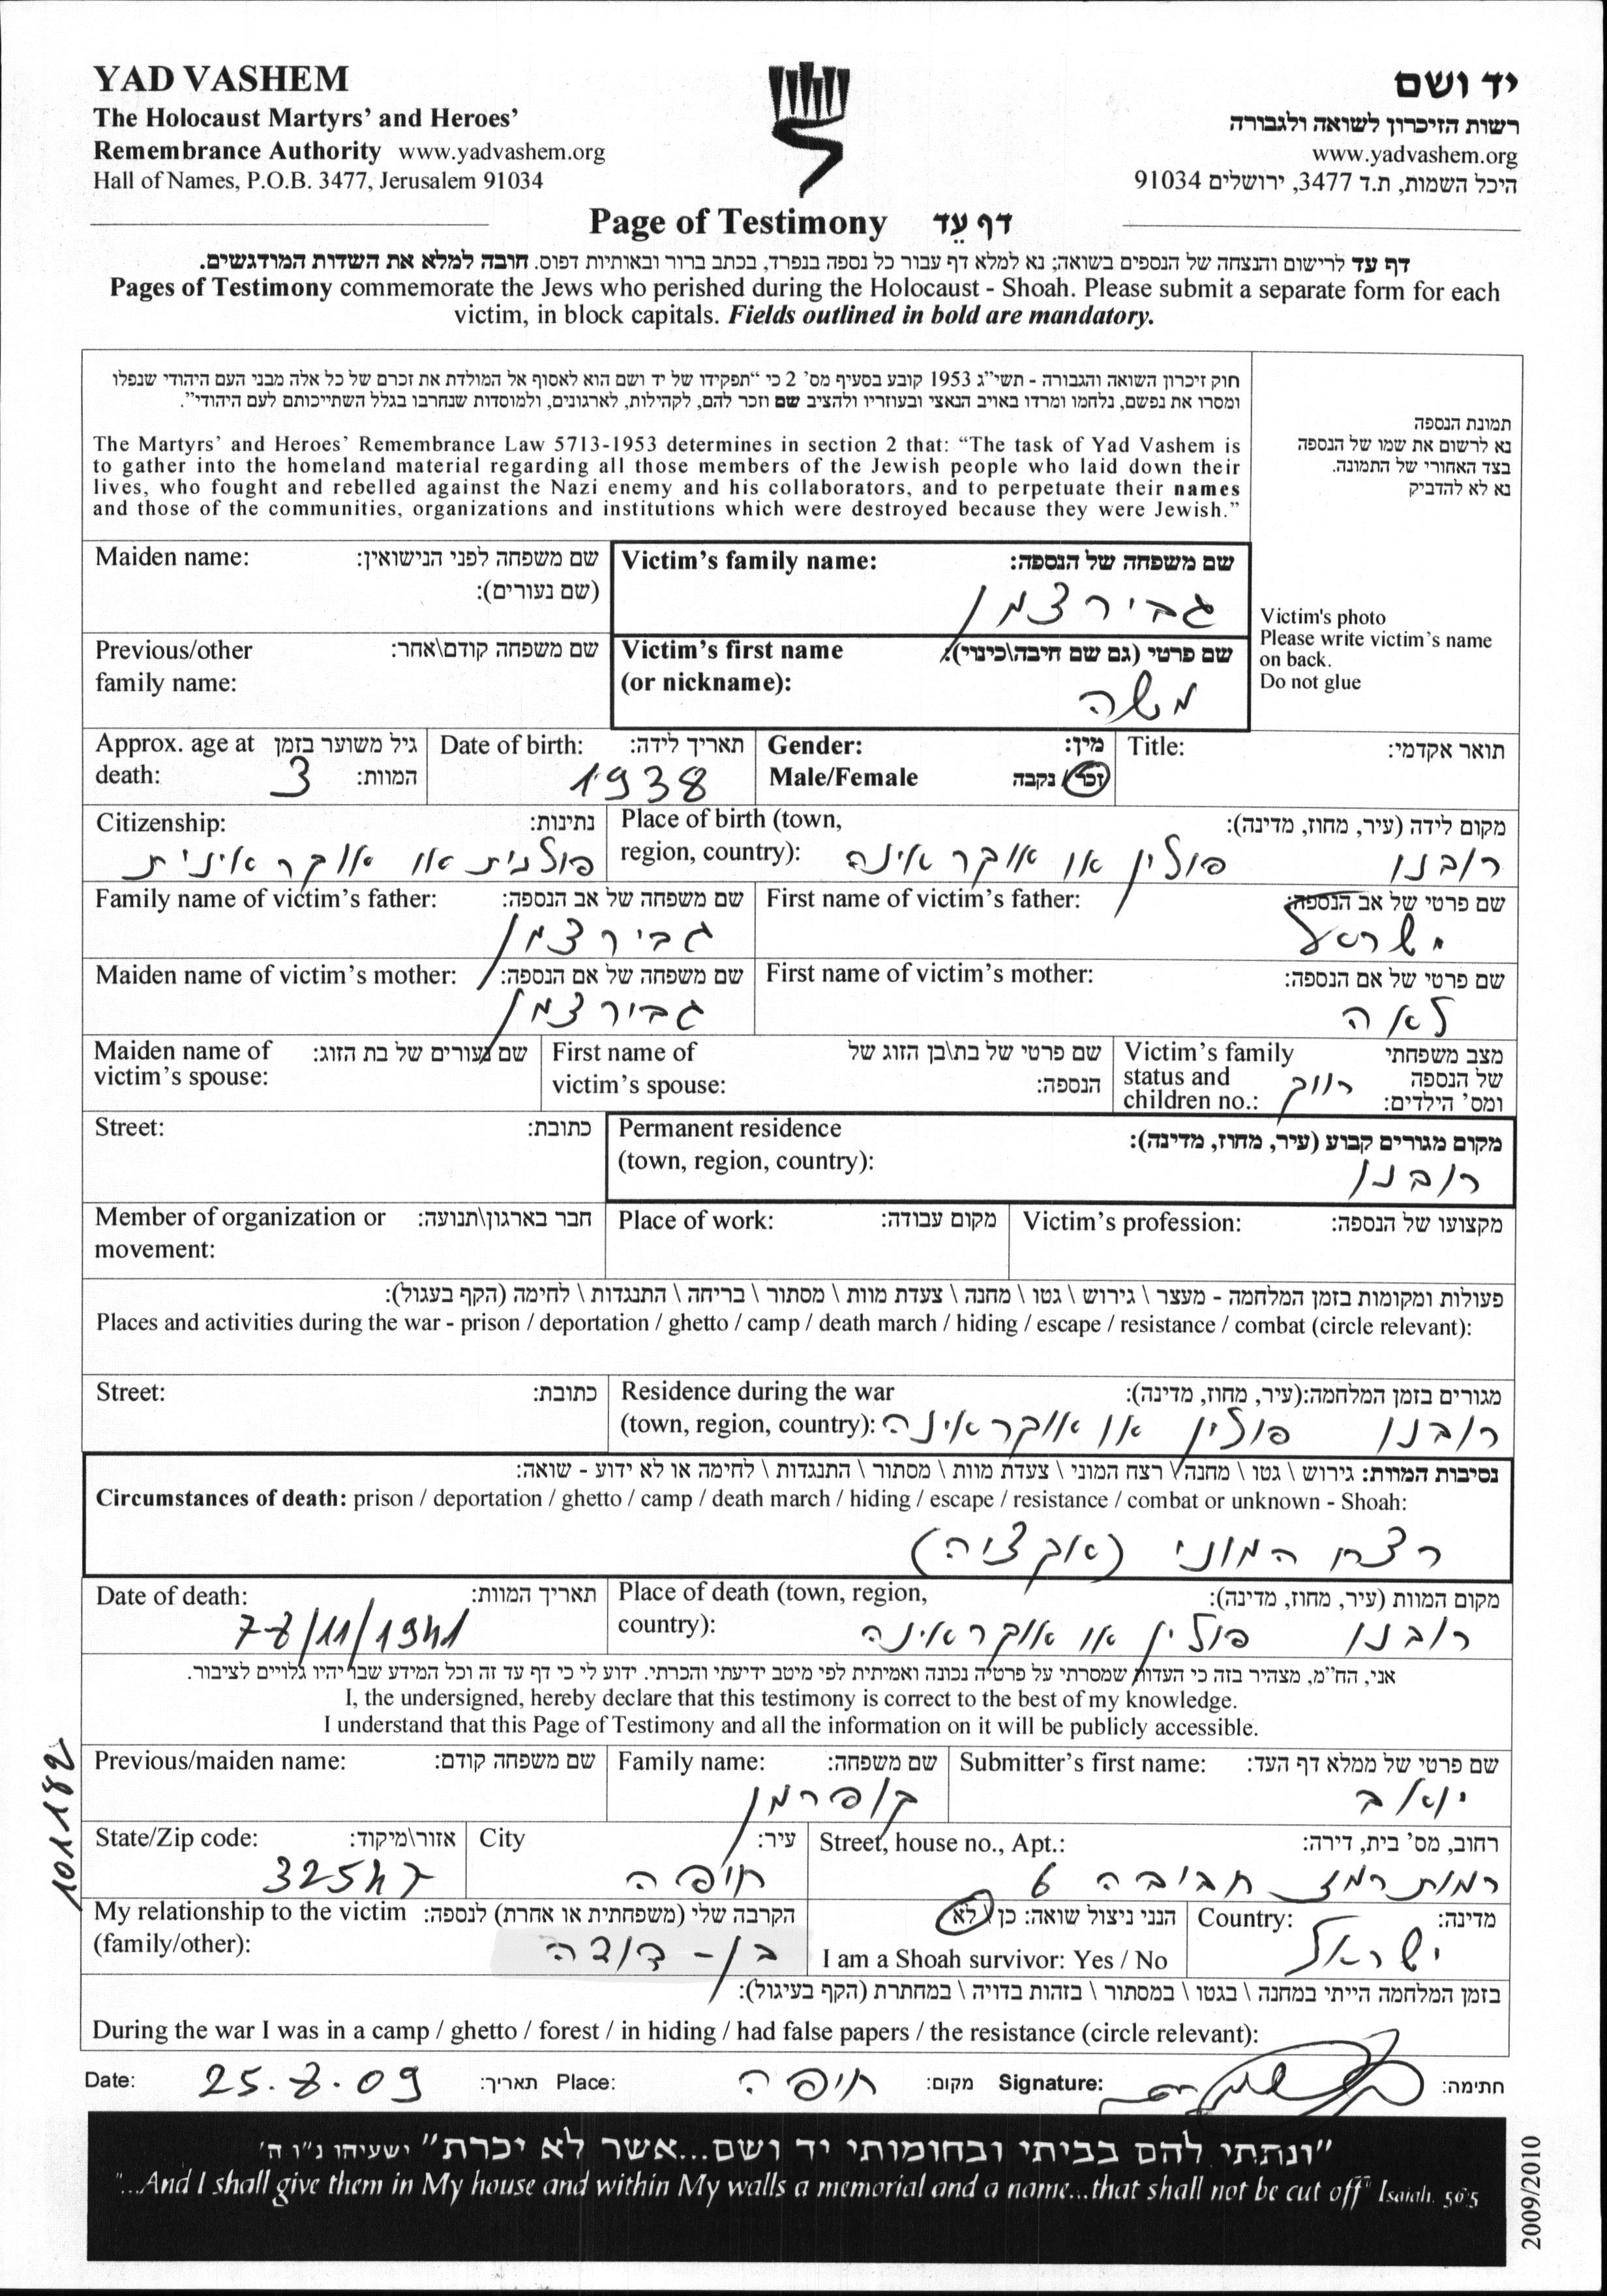 YAD VASHEM
The Holocaust Martyrs' and Heroes'
Remembrance Authority www.yadvashem.org
Hall of Names, P.O.B. 3477, Jerusalem 91034
יד ושם
רשות הזיכרון לשואה ולגבורה
www.yadvashem.org
היכל השמות, ת.ד 3477, ירושלים 91034
Page of Testimony דף עֵד
דף עד לרישום והנצחה של הנספים בשואה; נא למלא דף עבור כל נספה בנפרד, בכתב ברור ובאותיות דפוס. חובה למלא את השדות המודגשים.
Pages of Testimony commemorate the Jews who perished during the Holocaust - Shoah. Please submit a separate form for each
victim, in block capitals. Fields outlined in bold are mandatory.
חוק זיכרון השואה והגבורה - תשי"ג 1953 קובע בסעיף מס' 2 כי "תפקידו של יד ושם הוא לאסוף אל המולדת את זכרם של כל אלה מבני העם היהודי שנפלו
ומסרו את נפשם, נלחמו ומרדו באויב הנאצי ובעוזריו ולהציב שם וזכר להם, לקהילות, לארגונים, ולמוסדות שנחרבו בגלל השתייכותם לעם היהודי".
The Martyrs' and Heroes' Remembrance Law 5713-1953 determines in section 2 that: "The task of Yad Vashem is
to gather into the homeland material regarding all those members of the Jewish people who laid down their
lives, who fought and rebelled against the Nazi enemy and his collaborators, and to perpetuate their names
and those of the communities, organizations and institutions which were destroyed because they were Jewish."
תמונת הנספה
נא לרשום את שמו של הנספה
בצד האחורי של התמונה.
נא לא להדביק
Victim's photo
Please write victim's name
on back.
Do not glue
Maiden name: שם משפחה לפני הנישואין:
(שם נעורים):
Victim's family name: שם משפחה של הנספה:
גבירצמן
Previous/other שם משפחה קודם\אחר:
family name:
Victim's first name שם פרטי (גם שם חיבה\כינוי):
(or nickname):
משה
Approx. age at גיל משוער בזמן
death: 3 המוות:
Date of birth: תאריך לידה:
1938
Gender: מין:
Male/Female זכר / נקבה
Title: תואר אקדמי:
Citizenship: נתינות:
פולנית או אוקראינית
Place of birth (town, מקום לידה (עיר, מחוז, מדינה):
region, country): רובנו פולין או אוקראינה
Family name of victim's father: שם משפחה של אב הנספה:
גבירצמן
First name of victim's father: שם פרטי של אב הנספה:
ישראל
Maiden name of victim's mother: שם משפחה של אם הנספה:
גבירצמן
First name of victim's mother: שם פרטי של אם הנספה:
לאה
Maiden name of שם נעורים של בת הזוג:
victim's spouse:
First name of שם פרטי של בת\בן הזוג של
victim's spouse: הנספה:
Victim's family מצב משפחתי
status and של הנספה
children no.: ומס' הילדים:
רווק
Street: כתובת:
Permanent residence מקום מגורים קבוע (עיר, מחוז, מדינה):
(town, region, country):
רובנו
Member of organization or חבר בארגון\תנועה:
movement:
Place of work: מקום עבודה:
Victim's profession: מקצועו של הנספה:
פעולות ומקומות בזמן המלחמה - מעצר \ גירוש \ גטו \ מחנה \ צעדת מוות \ מסתור \ בריחה \ התנגדות \ לחימה (הקף בעגול):
Places and activities during the war - prison / deportation / ghetto / camp / death march / hiding / escape / resistance / combat (circle relevant):
Street: כתובת:
Residence during the war מגורים בזמן המלחמה:(עיר, מחוז, מדינה):
(town, region, country): רובנו פולין או אוקראינה
נסיבות המוות: גירוש \ גטו \ מחנה \ רצח המוני \ צעדת מוות \ מסתור \ התנגדות \ לחימה או לא ידוע - שואה:
Circumstances of death: prison / deportation / ghetto / camp / death march / hiding / escape / resistance / combat or unknown - Shoah:
רצח המוני (אקציה)
Date of death: תאריך המוות:
7-8/11/1941
Place of death (town, region, מקום המוות (עיר, מחוז, מדינה):
country): רובנו פולין או אוקראינה
אני, הח"מ, מצהיר בזה כי העדות שמסרתי על פרטיה נכונה ואמיתית לפי מיטב ידיעתי והכרתי. ידוע לי כי דף עד זה וכל המידע שבו יהיו גלויים לציבור.
I, the undersigned, hereby declare that this testimony is correct to the best of my knowledge.
I understand that this Page of Testimony and all the information on it will be publicly accessible.
Previous/maiden name: שם משפחה קודם:
Family name: שם משפחה:
קופרמן
Submitter's first name: שם פרטי של ממלא דף העד:
יואב
State/Zip code: אזור\מיקוד:
32547
City עיר:
חיפה
Street, house no., Apt.: רחוב, מס' בית, דירה:
רמות רמז חביבה 6
My relationship to the victim הקרבה שלי (משפחתית או אחרת) לנספה:
(family/other):
בן-דודה
הנני ניצול שואה: כן \ לא
I am a Shoah survivor: Yes / No
Country: מדינה:
ישראל
בזמן המלחמה הייתי במחנה \ בגטו \ במסתור \ בזהות בדויה \ במחתרת (הקף בעיגול):
During the war I was in a camp / ghetto / forest / in hiding / had false papers / the resistance (circle relevant):
Date: 25.8.09 תאריך: Place: חיפה מקום: Signature: חתימה:
"ונתתי להם בביתי ובחומותי יד ושם...אשר לא יכרת" ישעיהו נ"ו ה'
"...And I shall give them in My house and within My walls a memorial and a name...that shall not be cut off" Isaiah. 56:5
101182
2009/2010